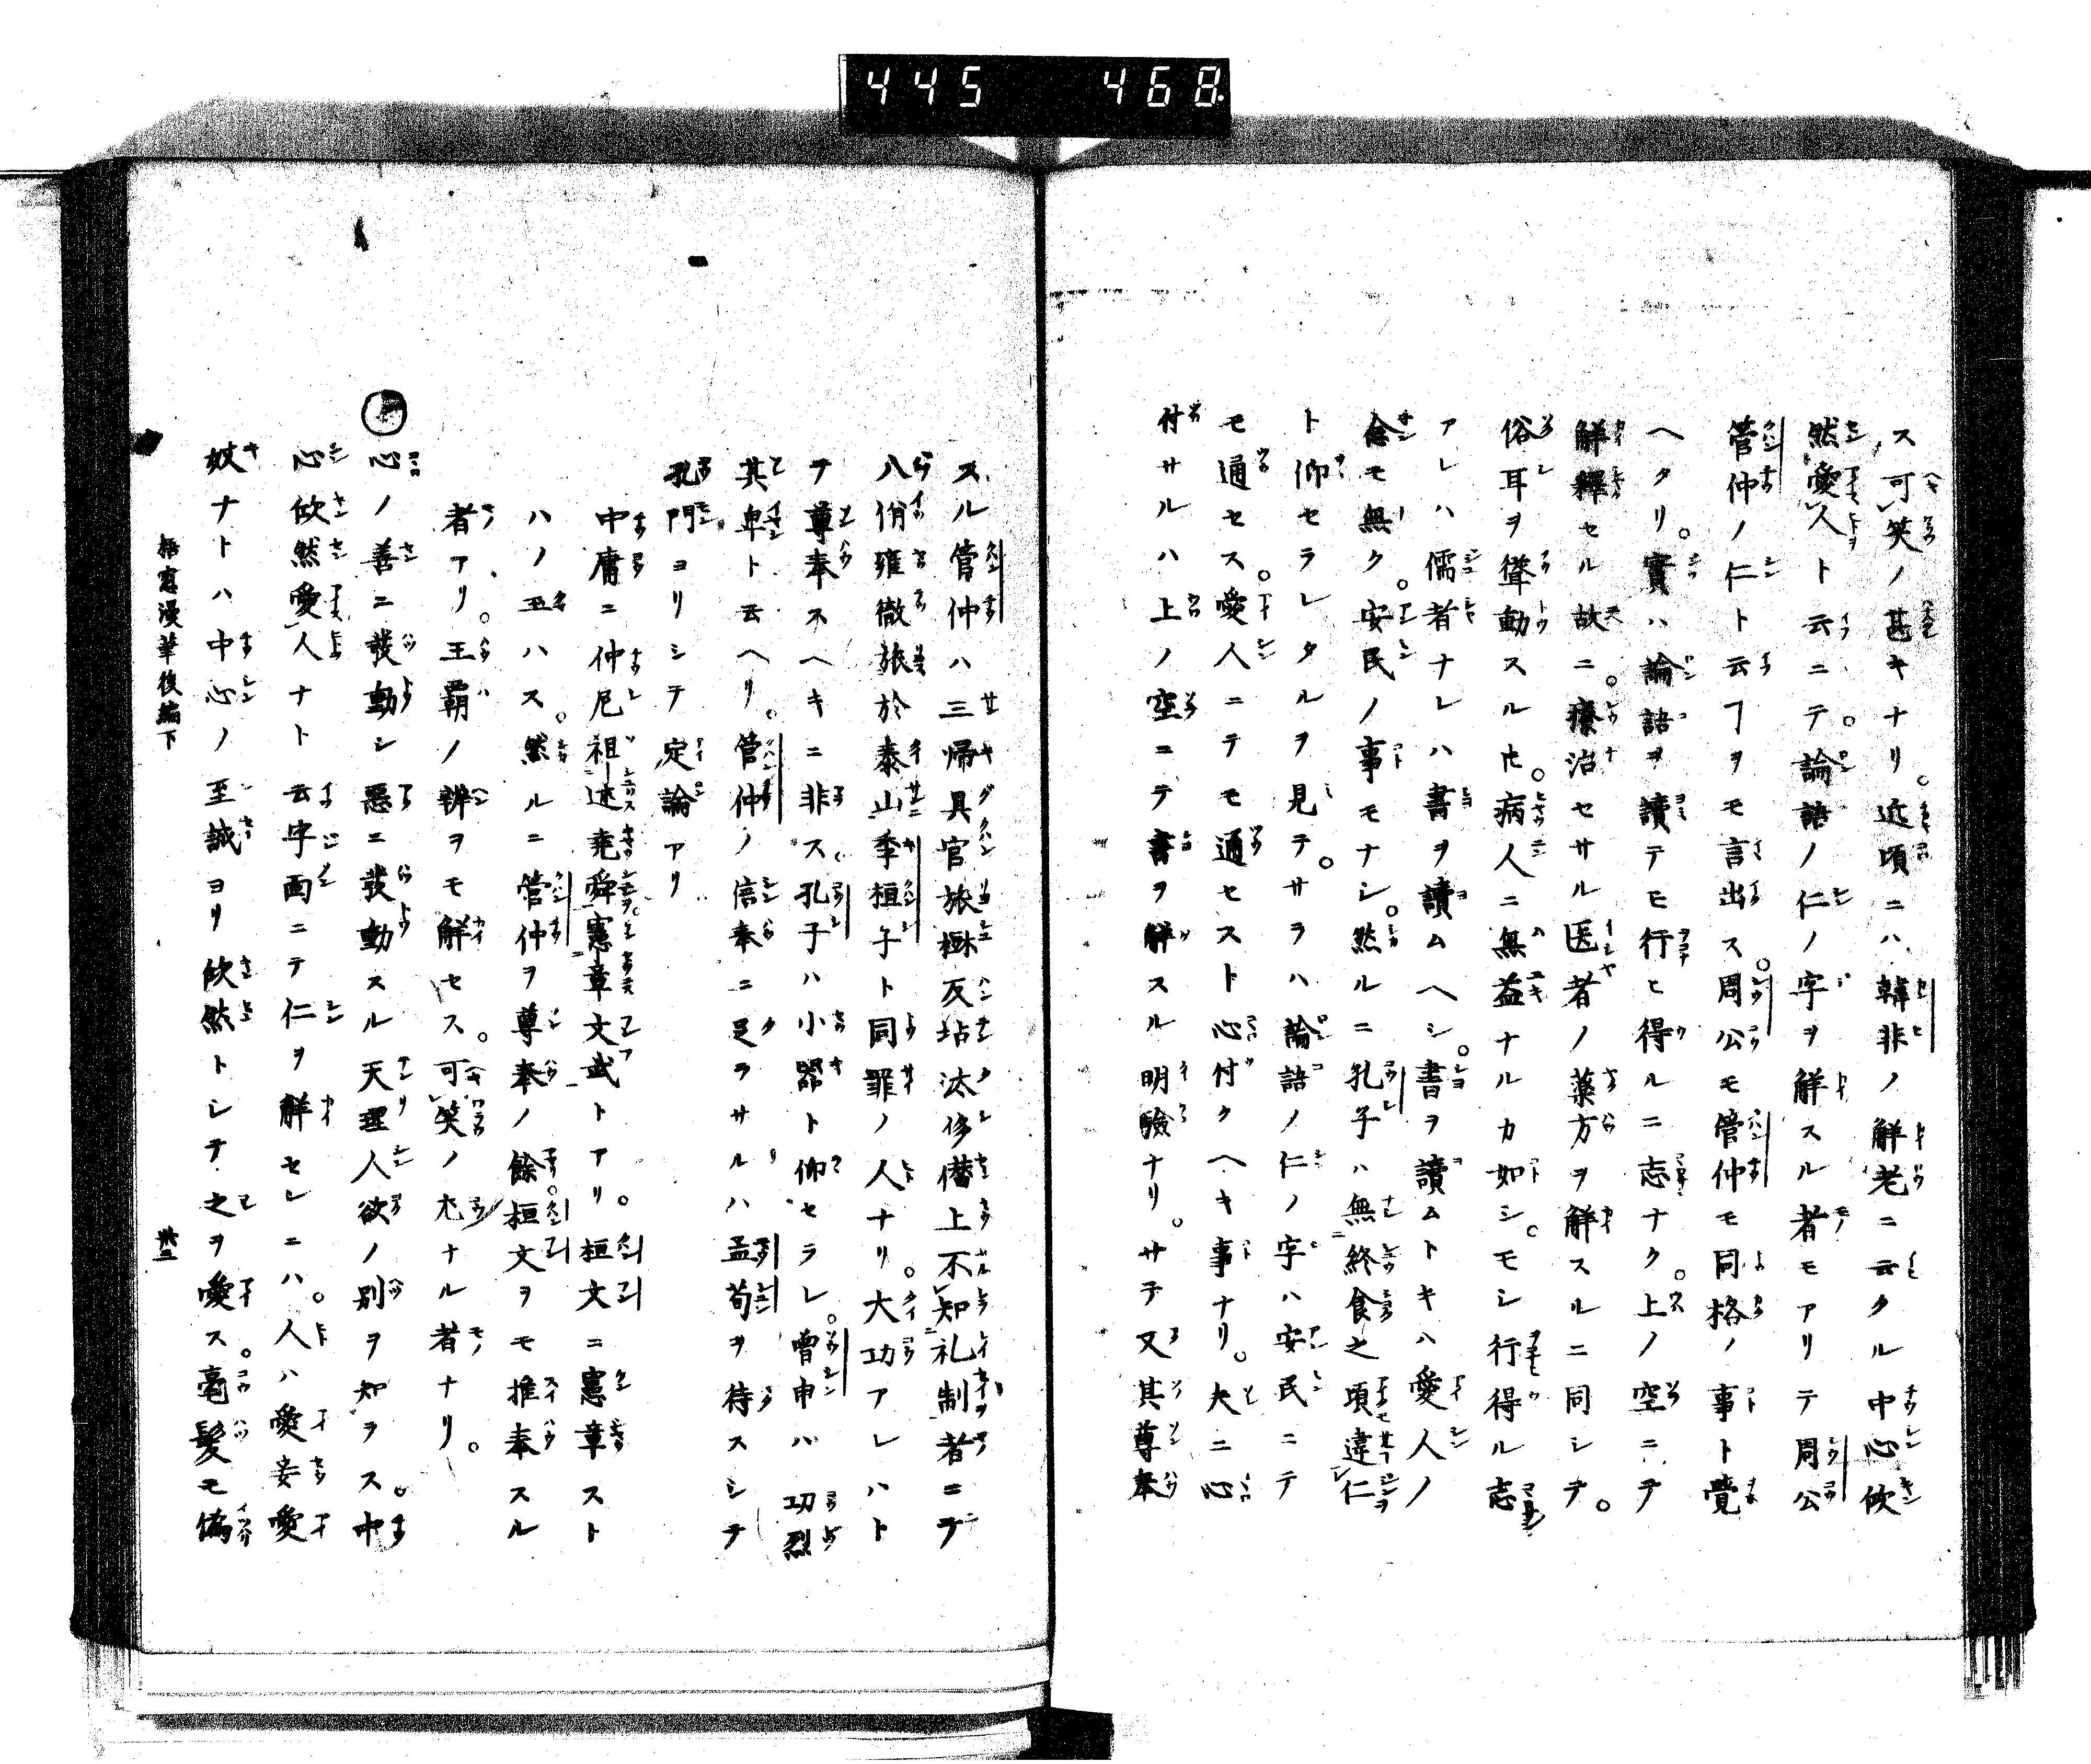 445 468
ス可笑ノ甚キナリ。近頃ニハ韓非ノ解老ニ云タル中心欣
然愛人ト云ニテ。論語ノ仁ノ字ヲ解スル者モアリテ周公
管仲ノ仁ト云ヿヲモ言出ス。周公モ管仲モ同格ノ事ト覺
ヘタリ。實ハ論語ヲ讀テモ行ヒ得ルニ志ナク。上ノ空ニテ
解釋セル故ニ。療治セサル医者ノ藥方ヲ解スルニ同シテ。
俗耳ヲ聳動スル𪜈。病人ニ無益ナルカ如シ。モシ行得ル志
アレハ儒者ナレハ書ヲ讀ムヘシ。書ヲ讀ムトキハ愛人ノ
念モ無ク。安民ノ事モナシ。然ルニ孔子ハ無終食之頃違仁
ト仰セラレタルヲ見テ。サヲハ論語ノ仁ノ字ハ安民ニテ
モ通セス。愛人ニテモ通セスト心付クヘキ事ナリ。夫ニ心
付サルハ上ノ空ニテ書ヲ解スル明驗ナリ。サテ又其尊奉
スル管仲ハ三帰具官旅樹反坫汰侈僭上不知礼制者ニテ
八佾雍徹旅於泰山季桓子ト同罪ノ人ナリ。大功アレハト
ヲ尊奉スヘキニ非ス。孔子ハ小器ト仰セラレ。曽申ハ功烈
其卑ト云ヘリ。管仲ノ信奉ニ足ラサルハ孟荀ヲ待スシテ
孔門ヨリシテ定論アリ
中庸ニ仲尼祖述堯舜。憲章文武トアリ。桓文ニ憲章スト
ハノ玉ハス。然ルニ管仲ヲ尊奉ノ餘。桓文ヲモ推奉スル
者アリ。王覇ノ辨ヲモ解セス。可笑ノ尤ナル者ナリ。
心ノ善ニ發動シ惡ニ發動スル天理人欲ノ別ヲ知ヲス。中
心欣然愛人ナト云字面ニテ仁ヲ解セレニハ。人ハ愛妾愛
妓ナトハ中心ノ至誠ヨリ欣然トシテ之ヲ愛ス。毫髪モ偽
梧窓漫筆後編下